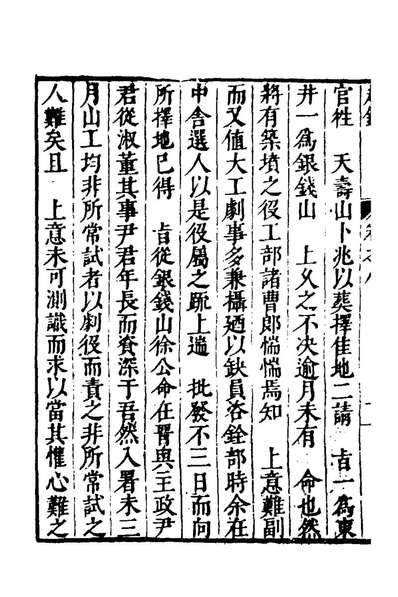 官牲　天壽山卜兆以葬擇佳地二請　旨一爲東
井一爲銀錢山　上久之不决逾月未有　命也然
將有築墳之役工部諸曹郎惴惴焉知　上意難副
而又值大工劇事多兼攝廼以缺員咨銓部時余在
中舍選人以是役屬之䟽上遄　批發不三日而向
所擇地已得　旨從銀錢山徐公命任胥與王政尹
君從淑董其事尹君年長而資深于吾然入署未三
月山工均非所常試者以劇役而責之非所常試之
人難矣且　上意未可測識而求以當其懽心難之